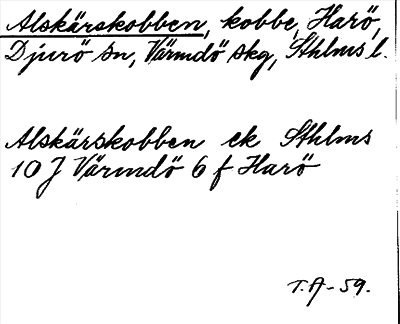 Alskärskobben, kobbe, Harö,
Djurö sn, Värmdö skg, Sthlms l.
Alskärskobben ek Sthlms
10 J Värmdö 6 f Harö
T.A-59.